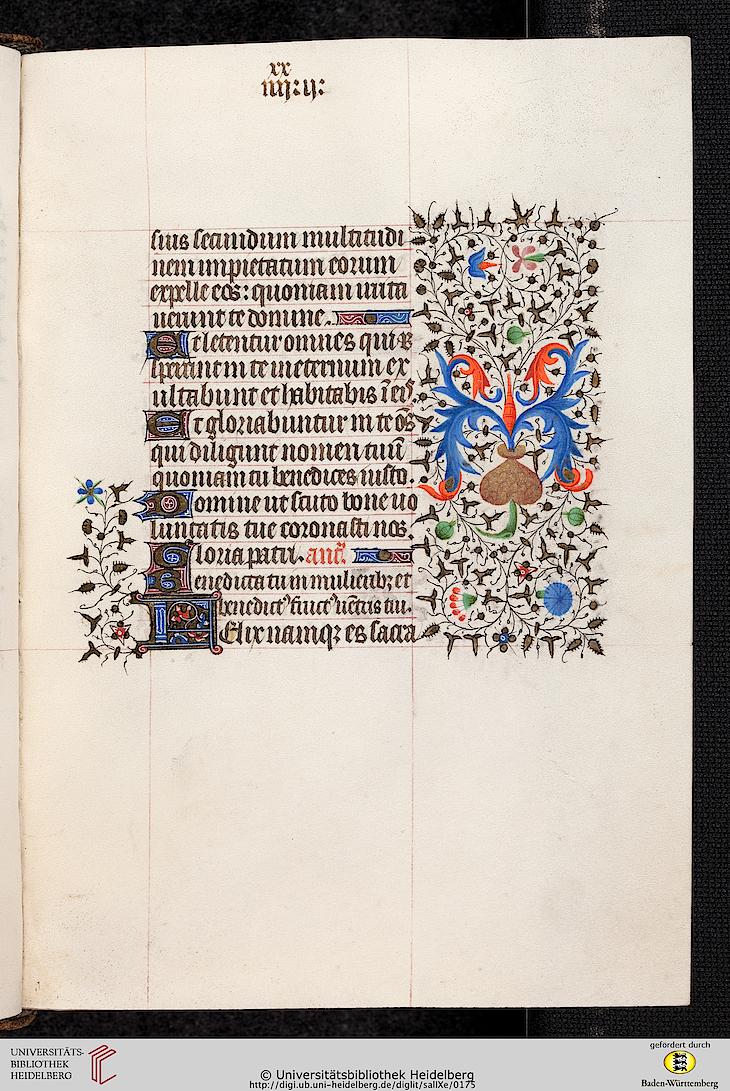 xx
iiij: ij:
suis secundum multitudi
nem impietatum eorum
expelle eos: quoniam irrita
uerunt te domine.
Et letentur omnes qui
sperant in te in eternum ex
ultabunt et habitabis ī eis.
Et gloriabuntur in te oēs
qui diligunt nomen tuū
quoniam tu benedices iusto.
Domine ut scuto bone uo
luntatis tue coronasti nos.
Gloria patri. añ.
Benedicta tu in mulieribꝫ et
benedictꝰ fructꝰ uētris tui.
Felix namqꝫ es sacra
UNIVERSITÄTS-
BIBLIOTHEK
HEIDELBERG
© Universitätsbibliothek Heidelberg
http://digi.ub.uni-heidelberg.de/diglit/salIXe/0175
gefördert durch
Baden-Württemberg